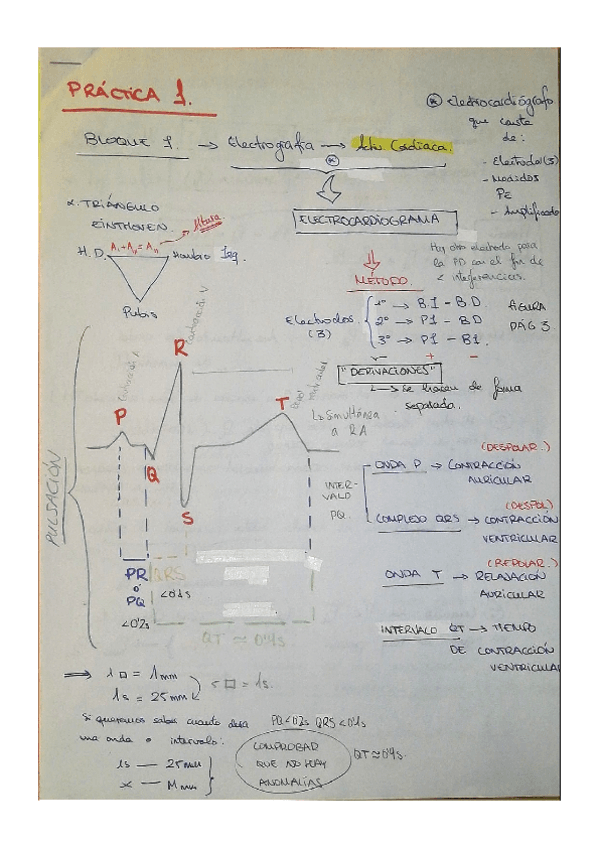 PRÁCTICA 1.
BLOQUE 1. → Electrografía → Activ Cardíaca.
* electrocardiógrafo
que consta
de:
- Electrodos (3)
- Medidos
PE
- Amplificado
ELECTROCARDIOGRAMA
α. TRIÁNGULO
EINTHOVEN.
Altura.
H.D. Hombro Izq.
Pubis
Hay otro electrodo para
la PD con el fin de
< interferencias.
MÉTODO.
Electrodos
(3)
1º → B.I - B.D
2º → PI - BD
3º → PI - BI
- +
FIGURA
PÁG 3.
"DERIVACIONES"
→ Se hacen de forma
separada.
PULSACIÓN
P
Q
R
Contracción V
S
T
↳ Simultánea
a RA
INTER-
VALO
PQ.
(DESPOLAR.)
ONDA P → CONTRACCIÓN
AURICULAR
(DESPOL)
COMPLEJO QRS → CONTRACCIÓN
VENTRICULAR
(REPOLAR.)
ONDA T → RELAJACIÓN
AURICULAR
INTERVALO QT → TIEMPO
DE CONTRACCIÓN
VENTRICULAR
PR
ó
PQ
<0'2s
QRS
<0'1s
QT ≈ 0'4s
⇒ 1 □ = 1mm
1s = 25mm
5 □ = 1s.
Si queremos saber cuanto dura
una onda o intervalo:
PQ<0'2s QRS<0'1s
QT≈0'4s.
1s — 25mm
x — M mm
COMPROBAD
QUE NO HAY
ANOMALÍAS